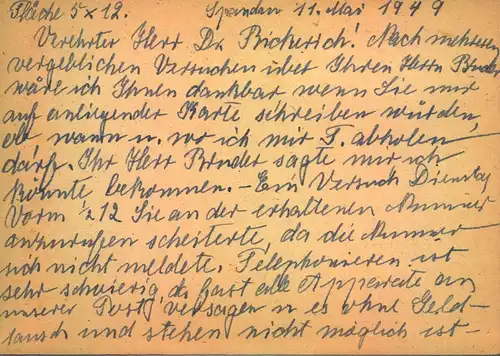 Fläche 5 x 12. Spandau 11. Mai 1949
Verehrter Herr Dr. Bickerich! Nach mehreren
vergeblichen Versuchen über Ihren Herrn Bruder
wäre ich Ihnen dankbar wenn Sie mir
auf einliegender Karte schreiben würden,
ob wann u. wo ich mir T. abholen
darf. Ihr Herr Bruder sagte mir ich
könnte bekommen. – Ein Versuch Dienstag
Vorm ½ 12 Sie an der erhaltenen Nummer
anzurufen scheiterte, da die Nummer
sich nicht meldete. Telephonieren ist
sehr schwierig da fast alle Apparate an
unserer Post versagen u es ohne Geld-
tausch und stehen nicht möglich ist